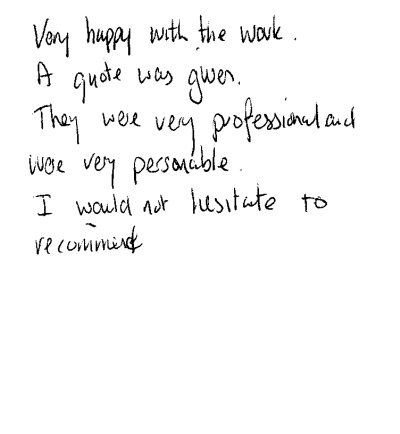 Very happy with the work.
A quote was given.
They were very professional and
were very personable.
I would not hesitate to
recommend